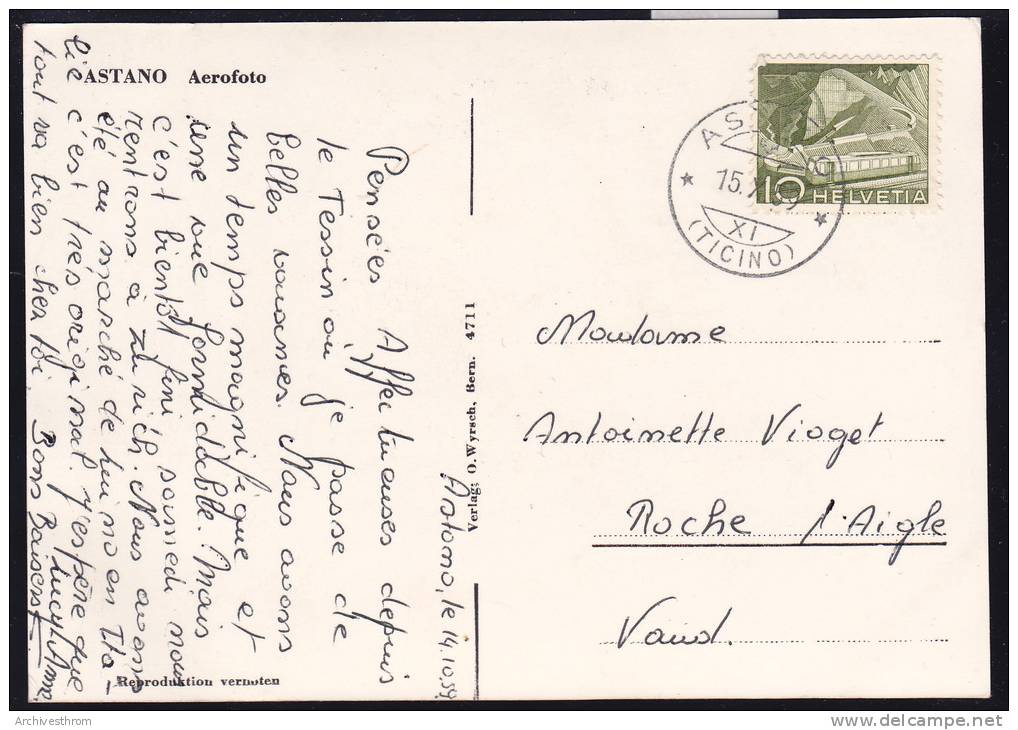 ASTANO Aerofoto
Astano, le 14.10.59
Pensées Affectueuses depuis
le Tessin où je passe de
belles vacances. Nous avons
un temps magnifique et
une vue formidable. Mais
c'est bientôt fini samedi nous
rentrons à Zurich. Nous avons
été au marché de Luino en Ita-
lie c'est très original. J'espère que
tout va bien chez toi. Bons Baisers
Lucy-Anne
Reproduktion verboten
Verlag: O. Wyrsch, Bern. 4711
10 HELVETIA
ASTANO
15.X.59
XI
(TICINO)
Madame
Antoinette Vioget
Roche s/Aigle
Vaud.
Archivesthrom
www.delcampe.net